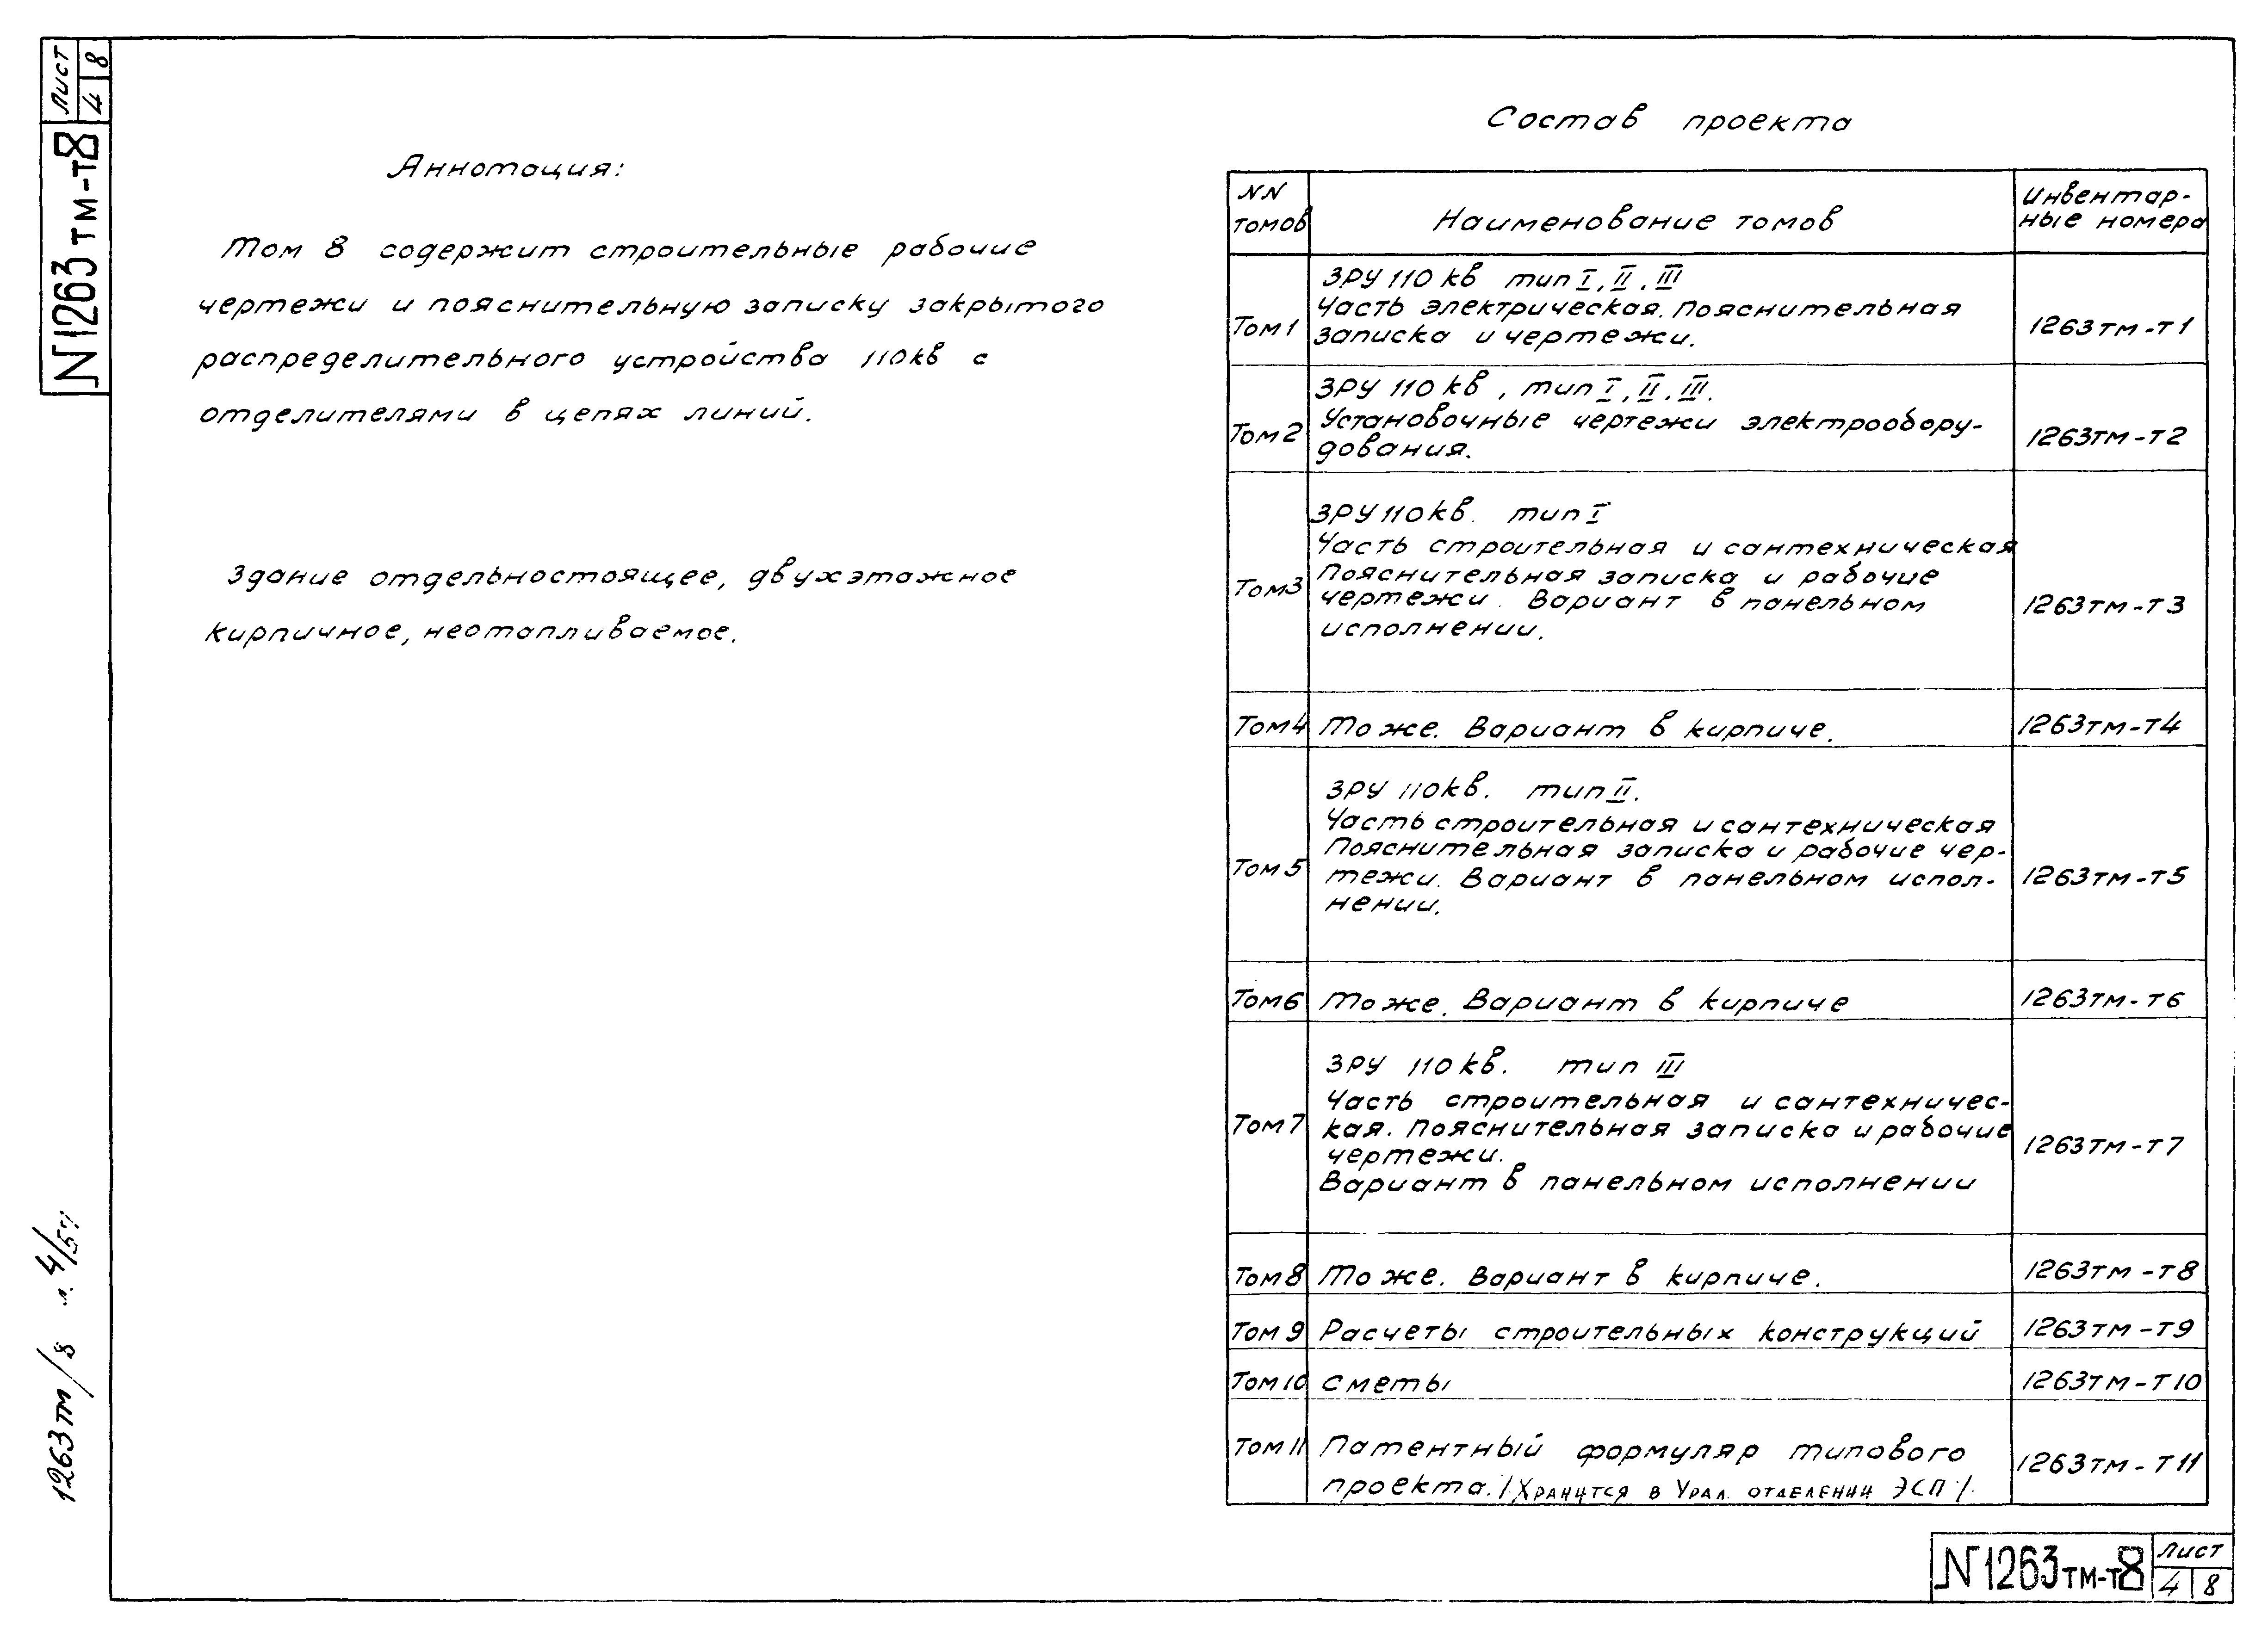 Лист
4 8
N1263тм-т8
Аннотация:
Том 8 содержит строительные рабочие
чертежи и пояснительную записку закрытого
распределительного устройства 110кв с
отделителями в цепях линий.
Здание отдельностоящее, двухэтажное
кирпичное, неотапливаемое.
Состав проекта
NN томов
Наименование томов
Инвентар-
ные номера
Том 1
ЗРУ 110 кв тип I, II, III
Часть электрическая. Пояснительная
записка и чертежи.
1263тм-т1
Том 2
ЗРУ 110 кв, тип I, II, III.
Установочные чертежи электрообору-
дования.
1263тм-т2
Том 3
ЗРУ 110кв. тип I
Часть строительная и сантехническая
Пояснительная записка и рабочие
чертежи. Вариант в панельном
исполнении.
1263тм-т3
Том 4
То же. Вариант в кирпиче.
1263тм-т4
Том 5
ЗРУ 110кв. тип II.
Часть строительная и сантехническая
Пояснительная записка и рабочие чер-
тежи. Вариант в панельном испол-
нении.
1263тм-т5
Том 6
То же. Вариант в кирпиче
1263тм-т6
Том 7
ЗРУ 110кв. тип III
Часть строительная и сантехничес-
кая. Пояснительная записка и рабочие
чертежи.
Вариант в панельном исполнении
1263тм-т7
Том 8
То же. Вариант в кирпиче.
1263тм-т8
Том 9
Расчеты строительных конструкций
1263тм-т9
Том 10
Сметы
1263тм-т10
Том 11
Патентный формуляр типового
проекта. /Хранится в Урал. отделении ЭСП/.
1263тм-т11
1263тм/8 л. 4/
N1263тм-т8
Лист
4 8